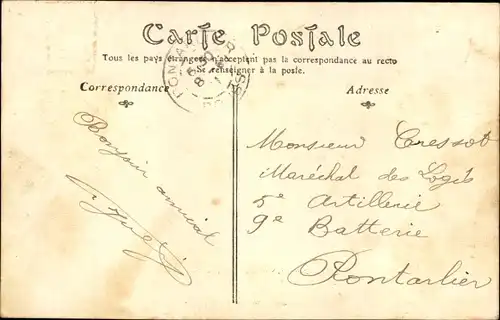 Carte Postale
Tous les pays étrangers n'acceptent pas la correspondance au recto
Se renseigner à la poste.
Correspondance
Adresse
Bonjour amical
Monsieur Cressot
Maréchal des Logis
5e Artillerie
9e Batterie
Pontarlier